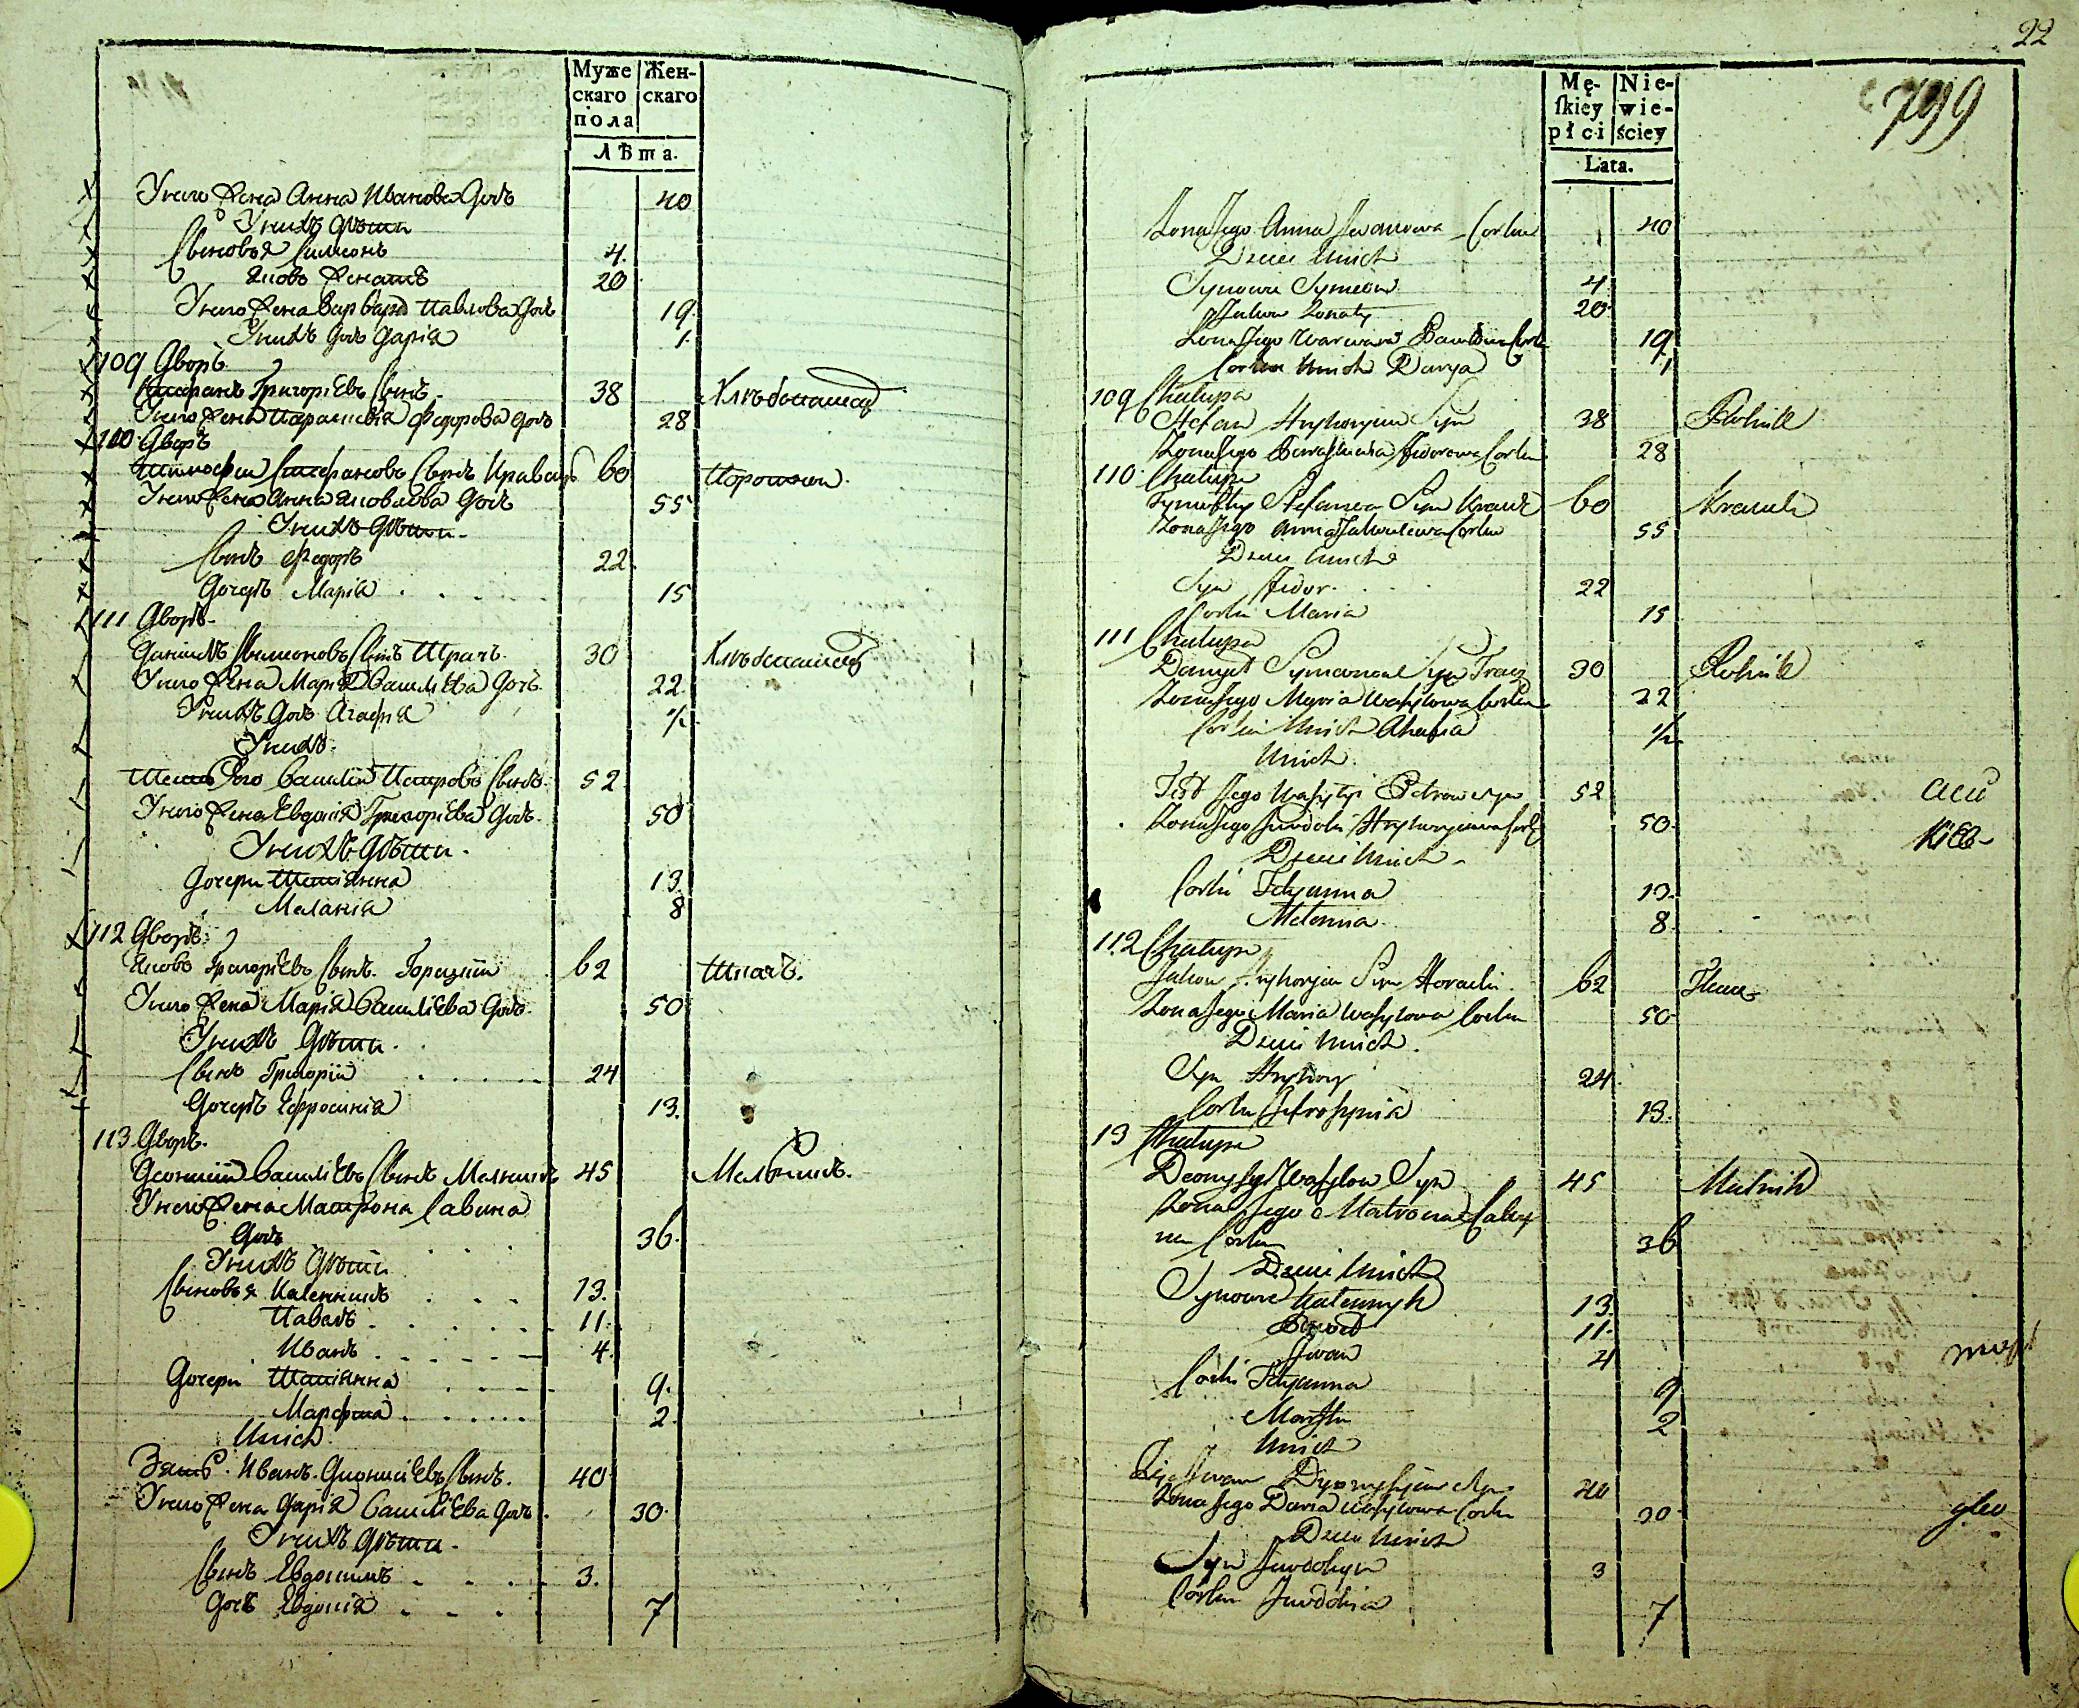 Муже
скаго
пола
Жен-
скаго
Лѣта.
У него жена Анна Иванова Дочь 40
У нихъ дѣти
Сыновья Симионъ 4
Яковъ женатъ 20
У него жена Варвара Павлова Дочь 19
У нихъ Дочь Дарія 1
109 Дворъ
Стефанъ Григоріевъ Сынъ 38 Хлѣбопашецъ
У него жена Параскевія Федорова Дочь 28
110 Дворъ
Тимофей Стефановъ Сынъ Кравецъ 60 Портной
У него жена Анна Яковлева Дочь 55
У нихъ Дѣти
Сынъ Федоръ 22
Дочерь Марія 15
111 Дворъ
Даніилъ Симионовъ Сынъ Трачъ 30 Хлѣбопашецъ
У него жена Марія Василіева Дочь 22
У нихъ Дочь Агафія ½
У нихъ
Тесть его Василій Петровъ Сынъ 52
У него жена Евдокія Григоріева Дочь 50
У нихъ Дѣти
Дочери Татіянна 13
Меланія 8
112 Дворъ
Яковъ Григоріевъ Сынъ 62 Ткачъ.
У него жена Марія Василіева Дочь 50
У нихъ Дѣти
Сынъ Григорій 24
Дочерь Ефросинія 13.
113 Дворъ
Деонисій Василіевъ Сынъ Мелникъ 45 Мельникъ.
У него жена Матрона Савина
Дочь 36
У нихъ Дѣти
Сыновья Каленникъ 13.
Павелъ 11.
Иванъ 4.
Дочери Татіянна 9.
Марфта 2.
Unich
Зять Иванъ Дионисіевъ Сынъ. 40
У него жена Дарія Василіева Дочь 30
У нихъ Дѣти
Сынъ Евдокимъ 3.
Дочь Евдокія 7
22
799
Mę-
ſkiey
płci
Nie-
wie-
ściey
Lata.
Zona Jego Anna Jwanowa Corka 40
Dzieci Unich
Synowie Symeon 4
Jakow Zonaty 20
Zona Jego Warwara Pawłowa Corka 19
Corka Unich Darya 1
109 Chałupa
Stefan Hryhoryiew Syn 38 Rolnik
Zona Jego Paraskewia Fiedorowa Corka 28
110 Chałupa
Tymofey Stefanow Syn Krawec 60 Krawiec
Zona Jego Anna Jakowlewa Corka 55
Dzieci Unich
Syn Fiedor 22
Corka Maria 15
111 Chałupa
Danyło Symeonow Syn Tracz 30 Rolnik
Zona Jego Marya Wasylowa Corka 22
Corka Unich Ahafia ½
Unich
Test Jego Wasyly Petrow Syn 52
Zona Jego Jewdokia Hryhoryiewa Corka 50
Dzieci Unich
Corki Tatyanna 13
Melania 8
112 Chałupa
Jakow Hryhoryiew Syn 62 Tkacz
Zona Jego Maria Wasylowa Corka 50
Dzieci Unich
Syn Hryhory 24
Corka Jefrosynia 13
13 Chałupa
Deonysy Wasylow Syn 45 Mielnik
Zona Jego Matrona Sawy
na Corka 36
Dzieci Unich
Synowie Kalennyk 13
Paweł 11
Jwan 4
Corki Tatyanna 9
Marfta 2
Unich
Zięć Jwan Dyonysyiew Syn 40
Zona Jego Daria Wasylowa Corka 30
Dzieci Unich
Syn Jewdokym 3
Corka Jewdokia 7